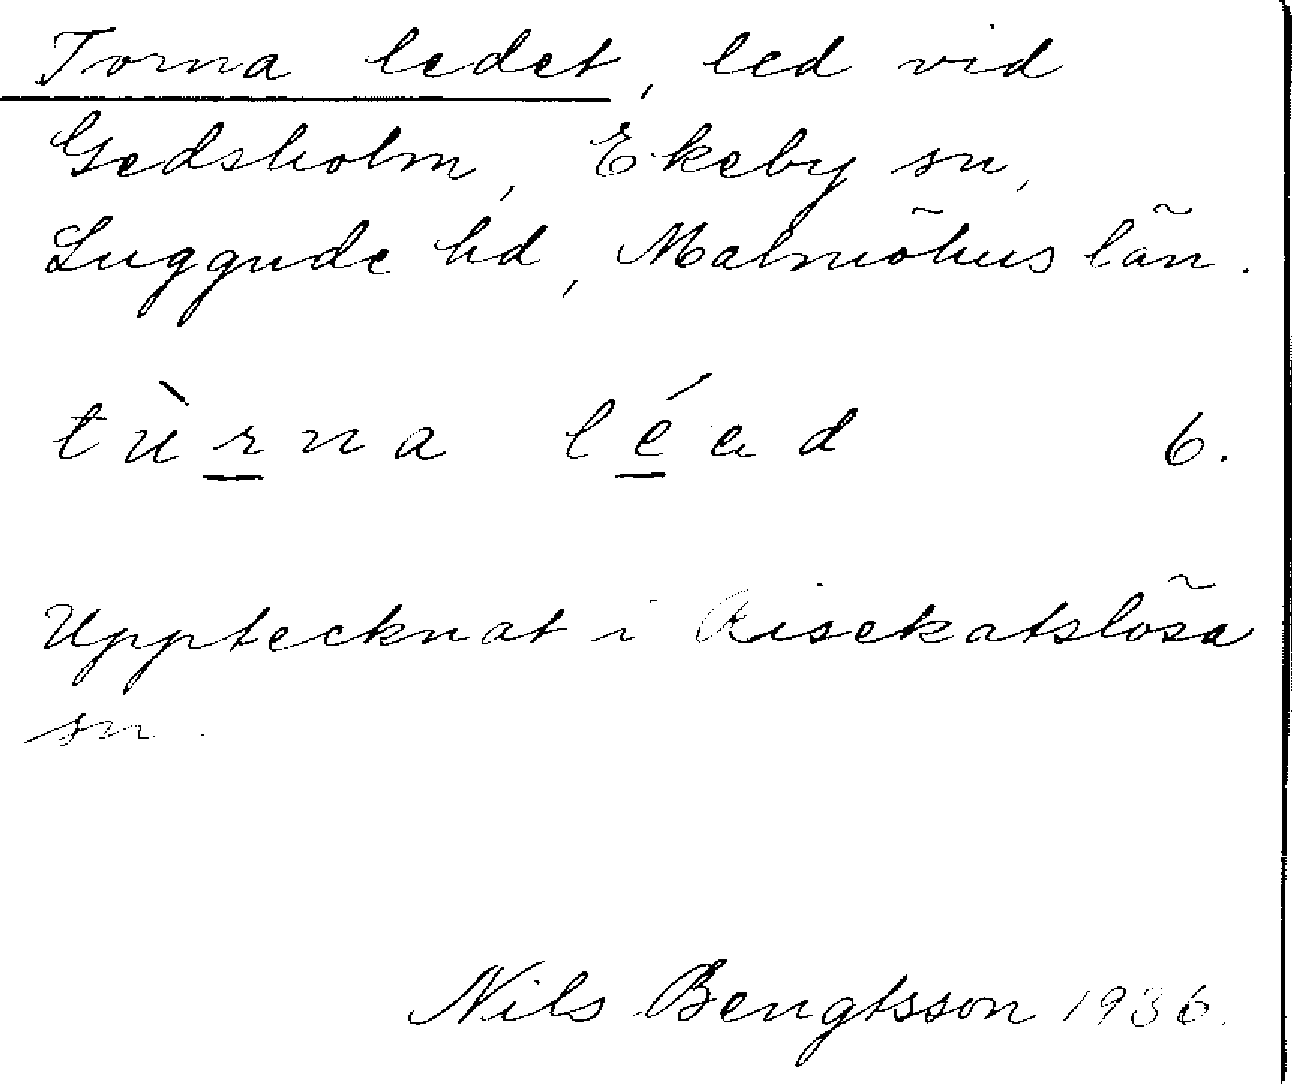 Torna ledet, led vid
Gedsholm, Ekeby sn,
Luggude hd, Malmöhus län.
tùrna léad 6.
Upptecknat i Risekatslösa
sn.
Nils Bengtsson 1936.